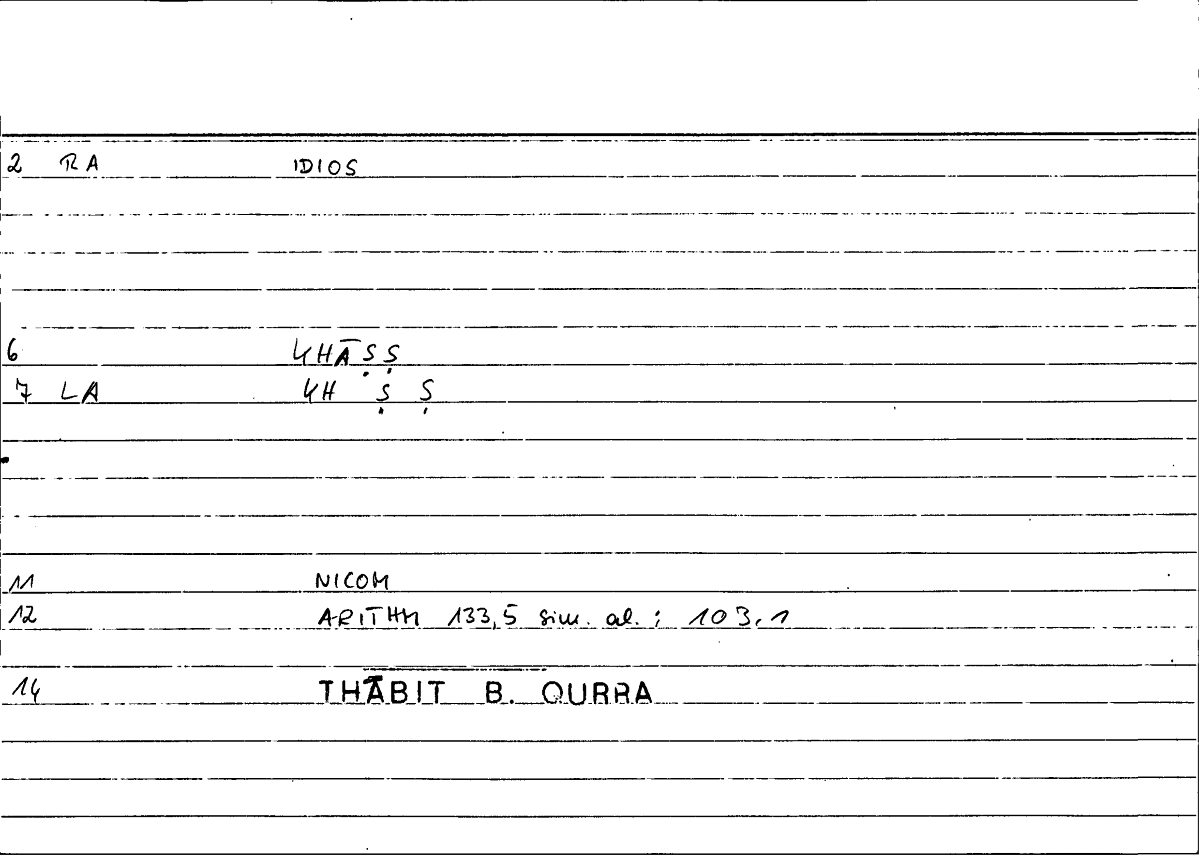 2 RA IDIOS
6 KHĀṢṢ
7 LA KH Ṣ Ṣ
11 NICOM
12 ARITHM 133,5 sim. al. ; 103,1
14 THĀBIT B. QURRA